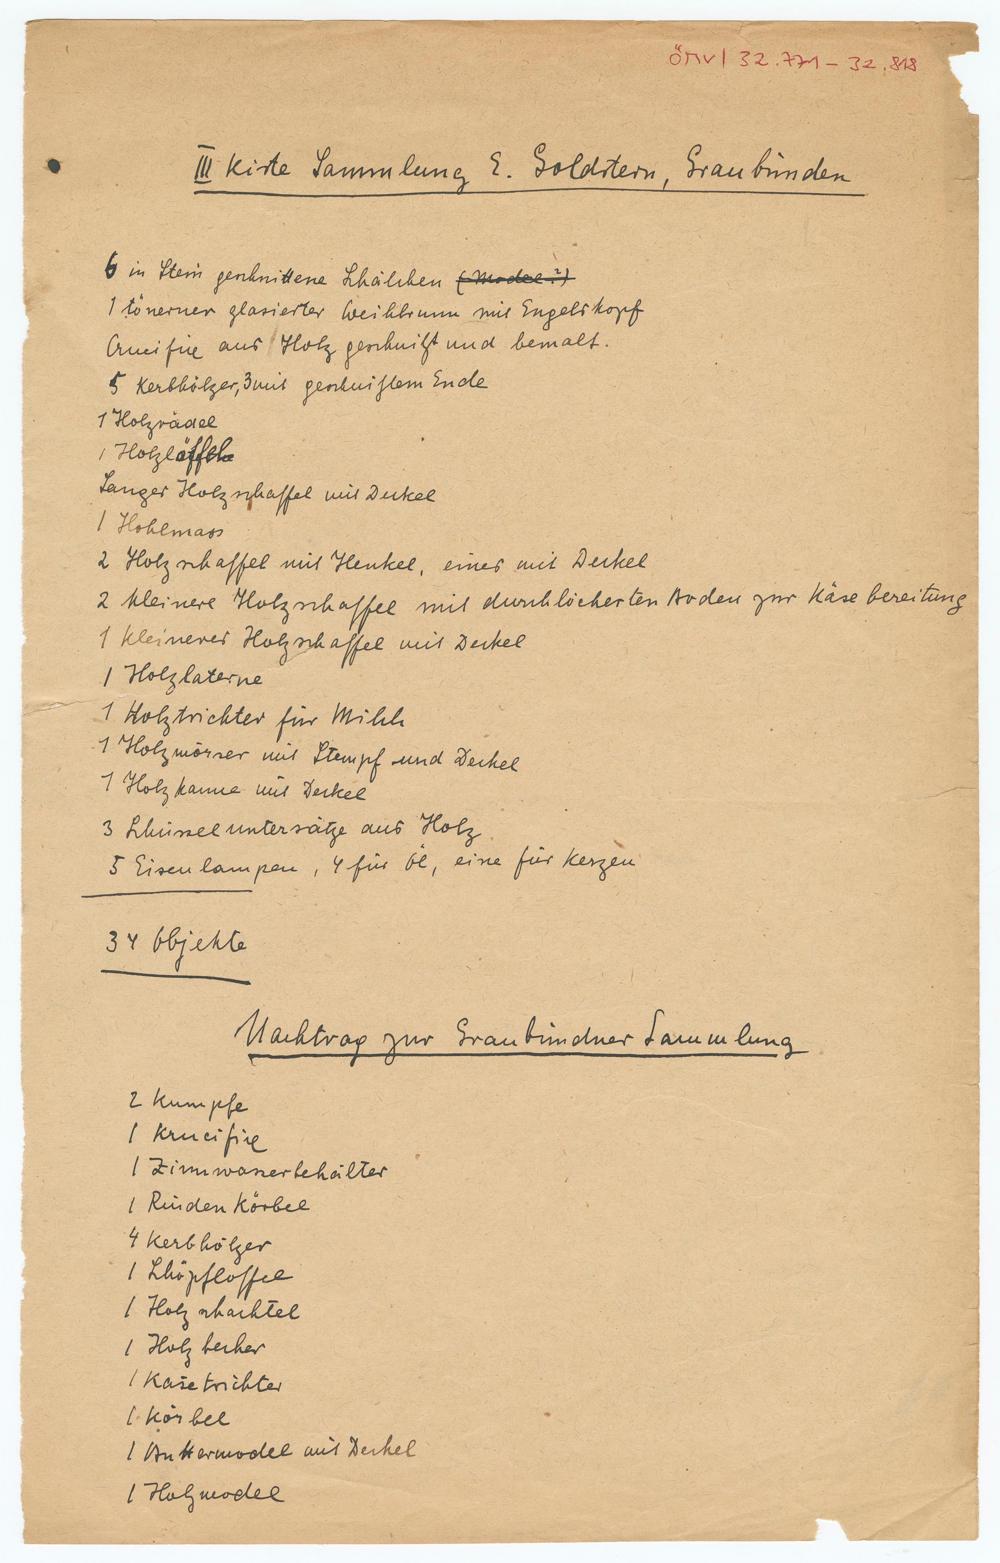 ÖMV/ 32.771 – 32.818
III Kiste Sammlung E. Goldstern, Graubünden
6 in Stein geschnittene Schälchen (Model?)
1 tönerner glasierter Weihbrunn mit Engelskopf
Crucifix aus Holz geschnitzt und bemalt.
5 Kerbhölzer, 3 mit geschnitztem Ende
1 Holzrädel
1 Holzlöffel
Langer Holzschaffel mit Deckel
1 Hohlmass
2 Holzschaffel mit Henkel, eines mit Deckel
2 kleinere Holzschaffel mit durchlöcherten Boden zur Käsebereitung
1 kleineres Holzschaffel mit Deckel
1 Holzlaterne
1 Holztrichter für Milch
1 Holzmörser mit Stempf und Deckel
1 Holzkanne mit Deckel
3 Schüsseluntersätze aus Holz
5 Eisenlampen, 4 für Öl, eine für Kerzen
34 Objekte
Nachtrag zur Graubündner Sammlung
2 Kumpfe
1 Krucifix
1 Zinnwasserbehälter
1 Rinden Körbel
4 Kerbhölzer
1 Schöpfloffel
1 Holzschachtel
1 Holzbecher
1 Käsetrichter
1 Körbel
1 Buttermodel mit Deckel
1 Holzmodel